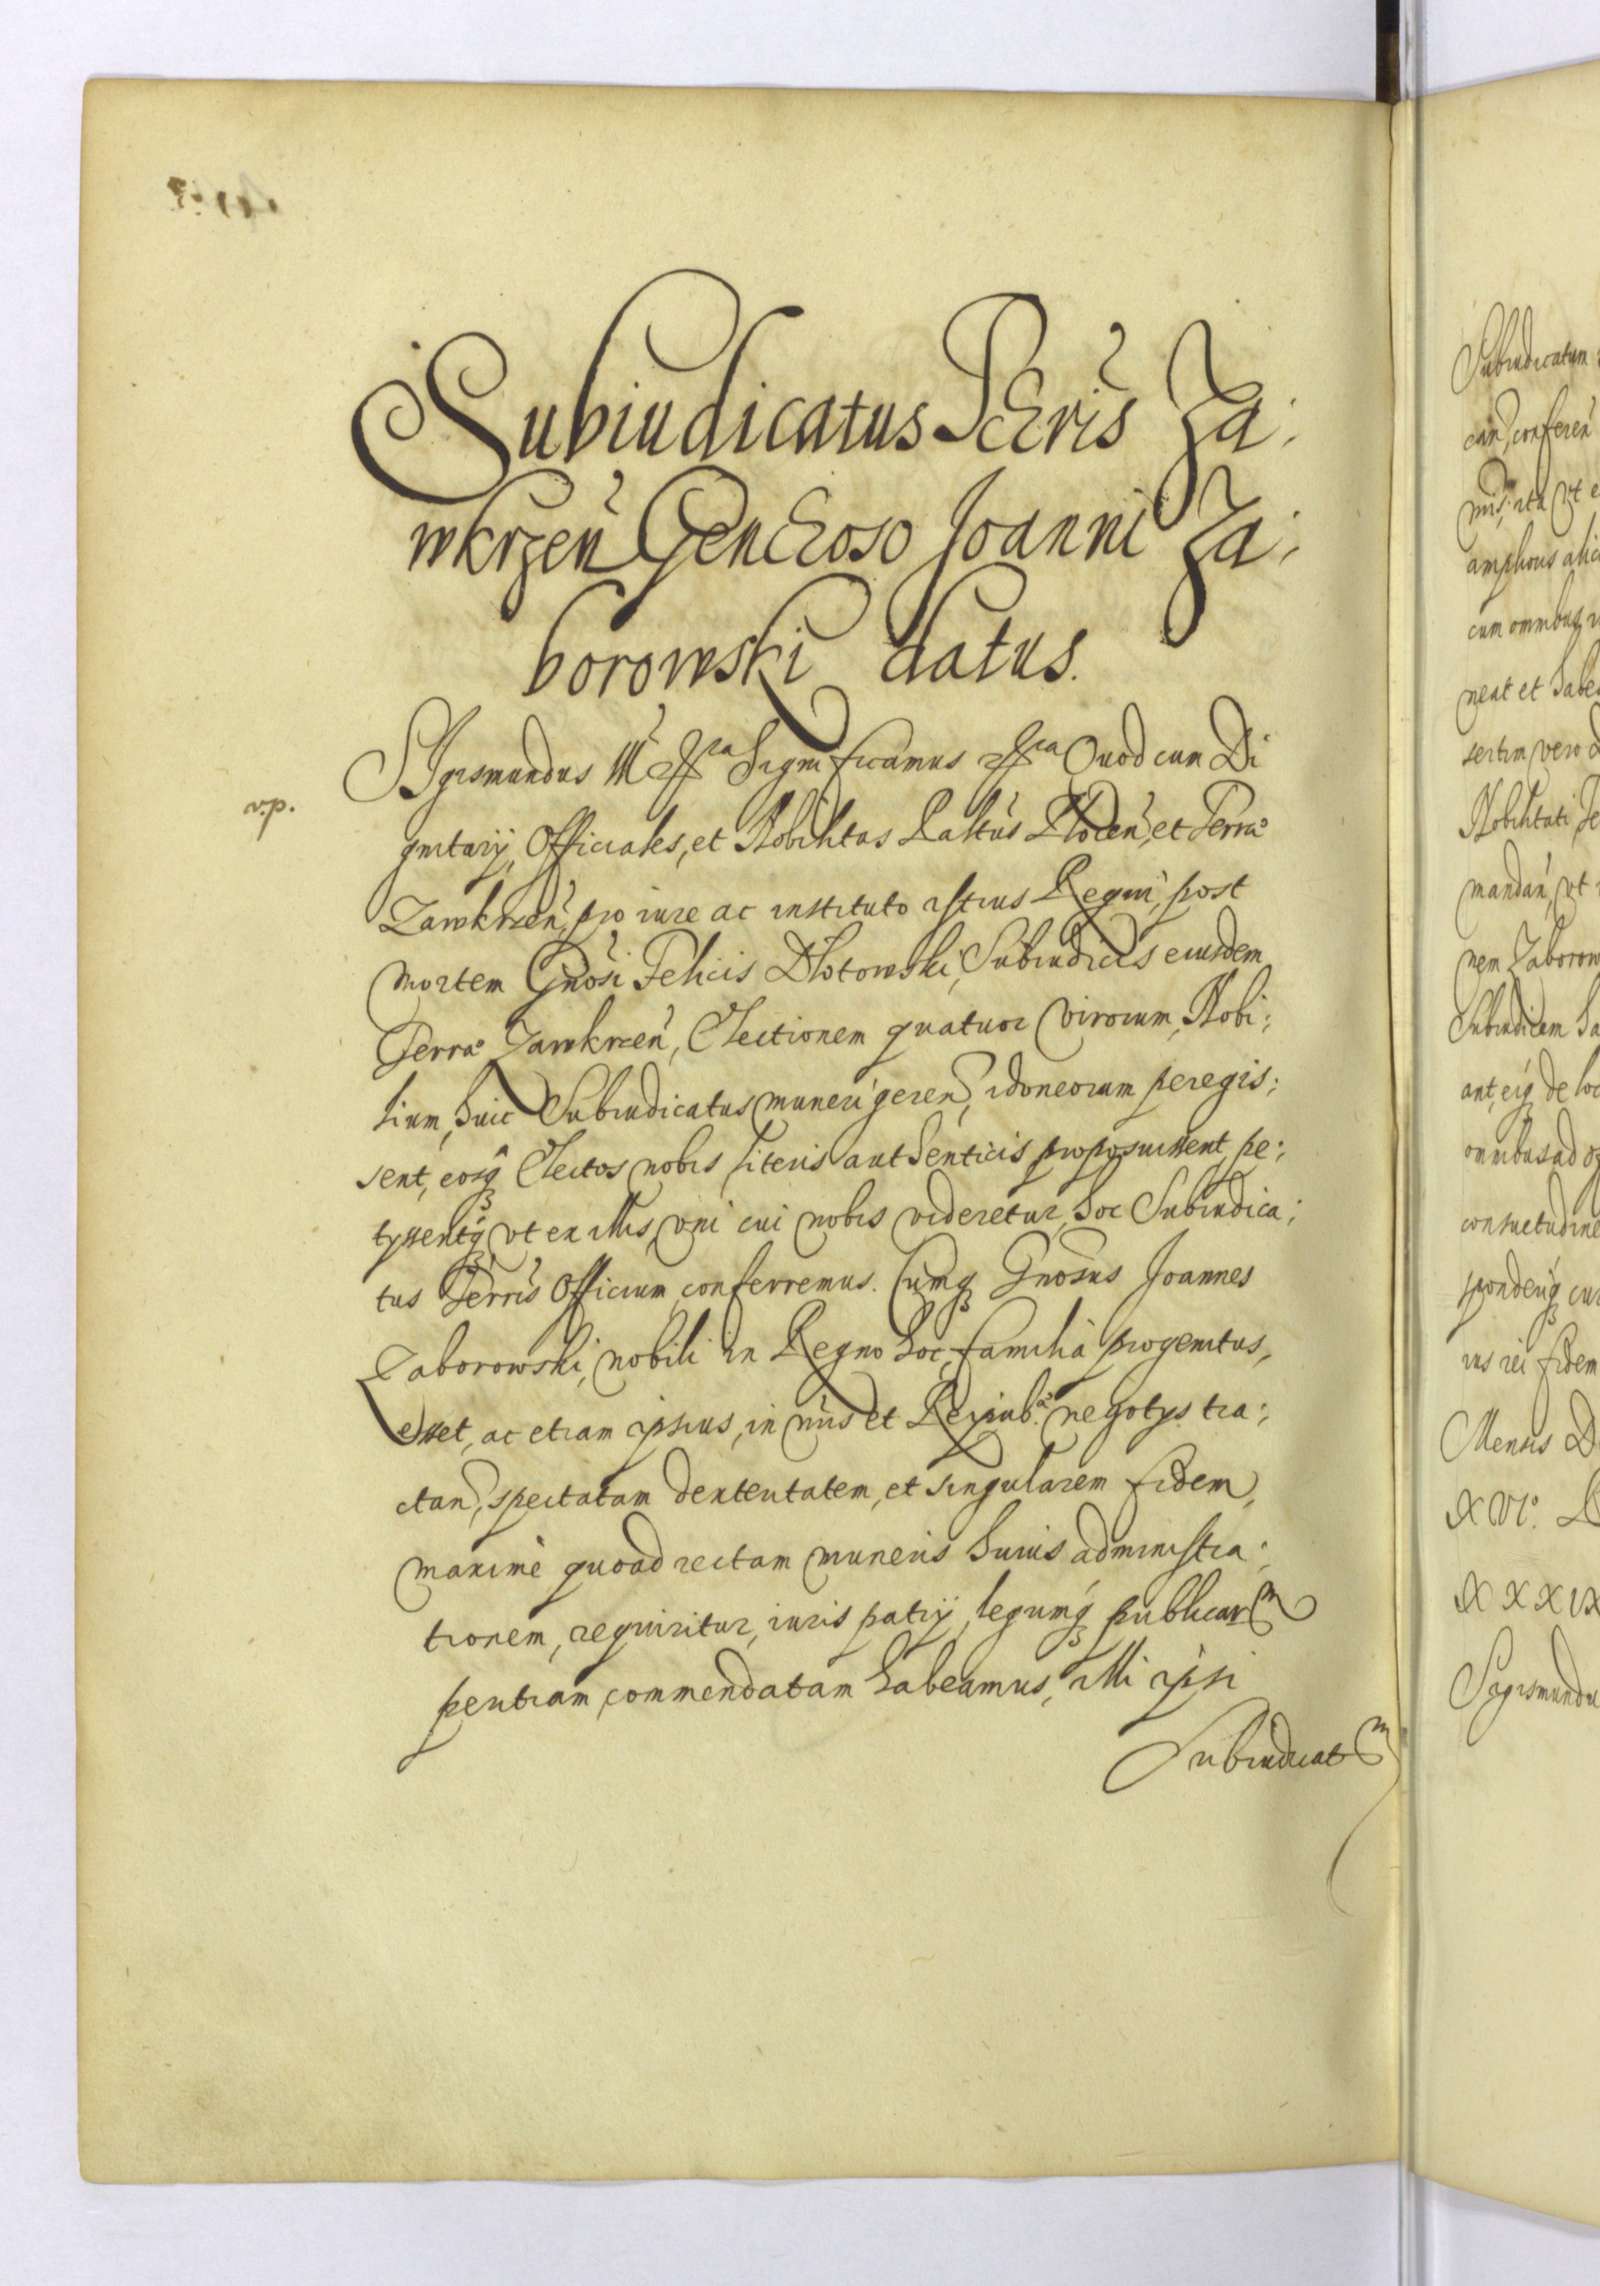 Subiudicatus Terris Za:
wkrzen Generoso Joanni Za:
borowski datus.
v.p.
Sigismundus III etc Significamus etc Quod cum Di
gnitarij, Officiales, et Nobilitas Paltus Plocen, et Terræ
Zawkrzen, pro iure ac instituto istius Regni, post
mortem Gnosi Felicis Dlotowski, Subiudicis eiusdem
Terræ Zawkrzen, Electionem quatuor virorum, Nobi:
lium, huic Subiudicatus muneri geren, idoneorum peregis:
sent, eosq Electos nobis literis authenticis proposuissent, pe:
tyssentq, vt ex illis, vni cui nobis videretur, hoc Subiudica:
tus Terris Officium conferremus. Cumq Gnosus Joannes
Zaborowski, nobili in Regno hoc, familia progenitus,
esset, ac etiam ipsius, in nris et Reipub. negotys tra:
ctan, spectatam dexteritatem, et singularem fidem,
maxime quoad rectam muneris huius administra:
tionem, requiritur, iuris patrij, legumq publicar
peritiam, commendatam habeamus, illi ipsi
Subiudicat
Subiudicatum
can, conferen
mis, ita vt
cum omnibus
neat et habe
sertim vero
Nobilitati,
mandan, vt
nem Zaborow
Subiudicem ha
ant, eiq de loc
omnibus ad
consuetudine
sponderiq cur
ius rei fidem
Mensis D
XVI.
XXXIX
Sigismundu